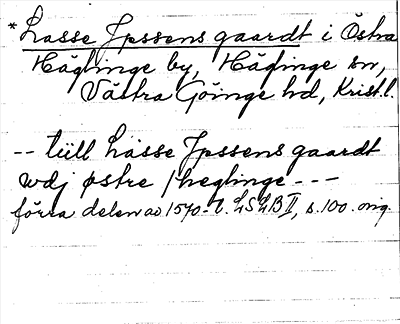 *Lasse Jpssens gaardt i Östra
Häglinge by, Häglinge sn,
Västra Göinge hd, Krist.l.
-- tiill Lasse Jpssens gaardt
wdj østre / heglinge ---
förra delen av 1570-t. LSLB II, s. 100. orig.